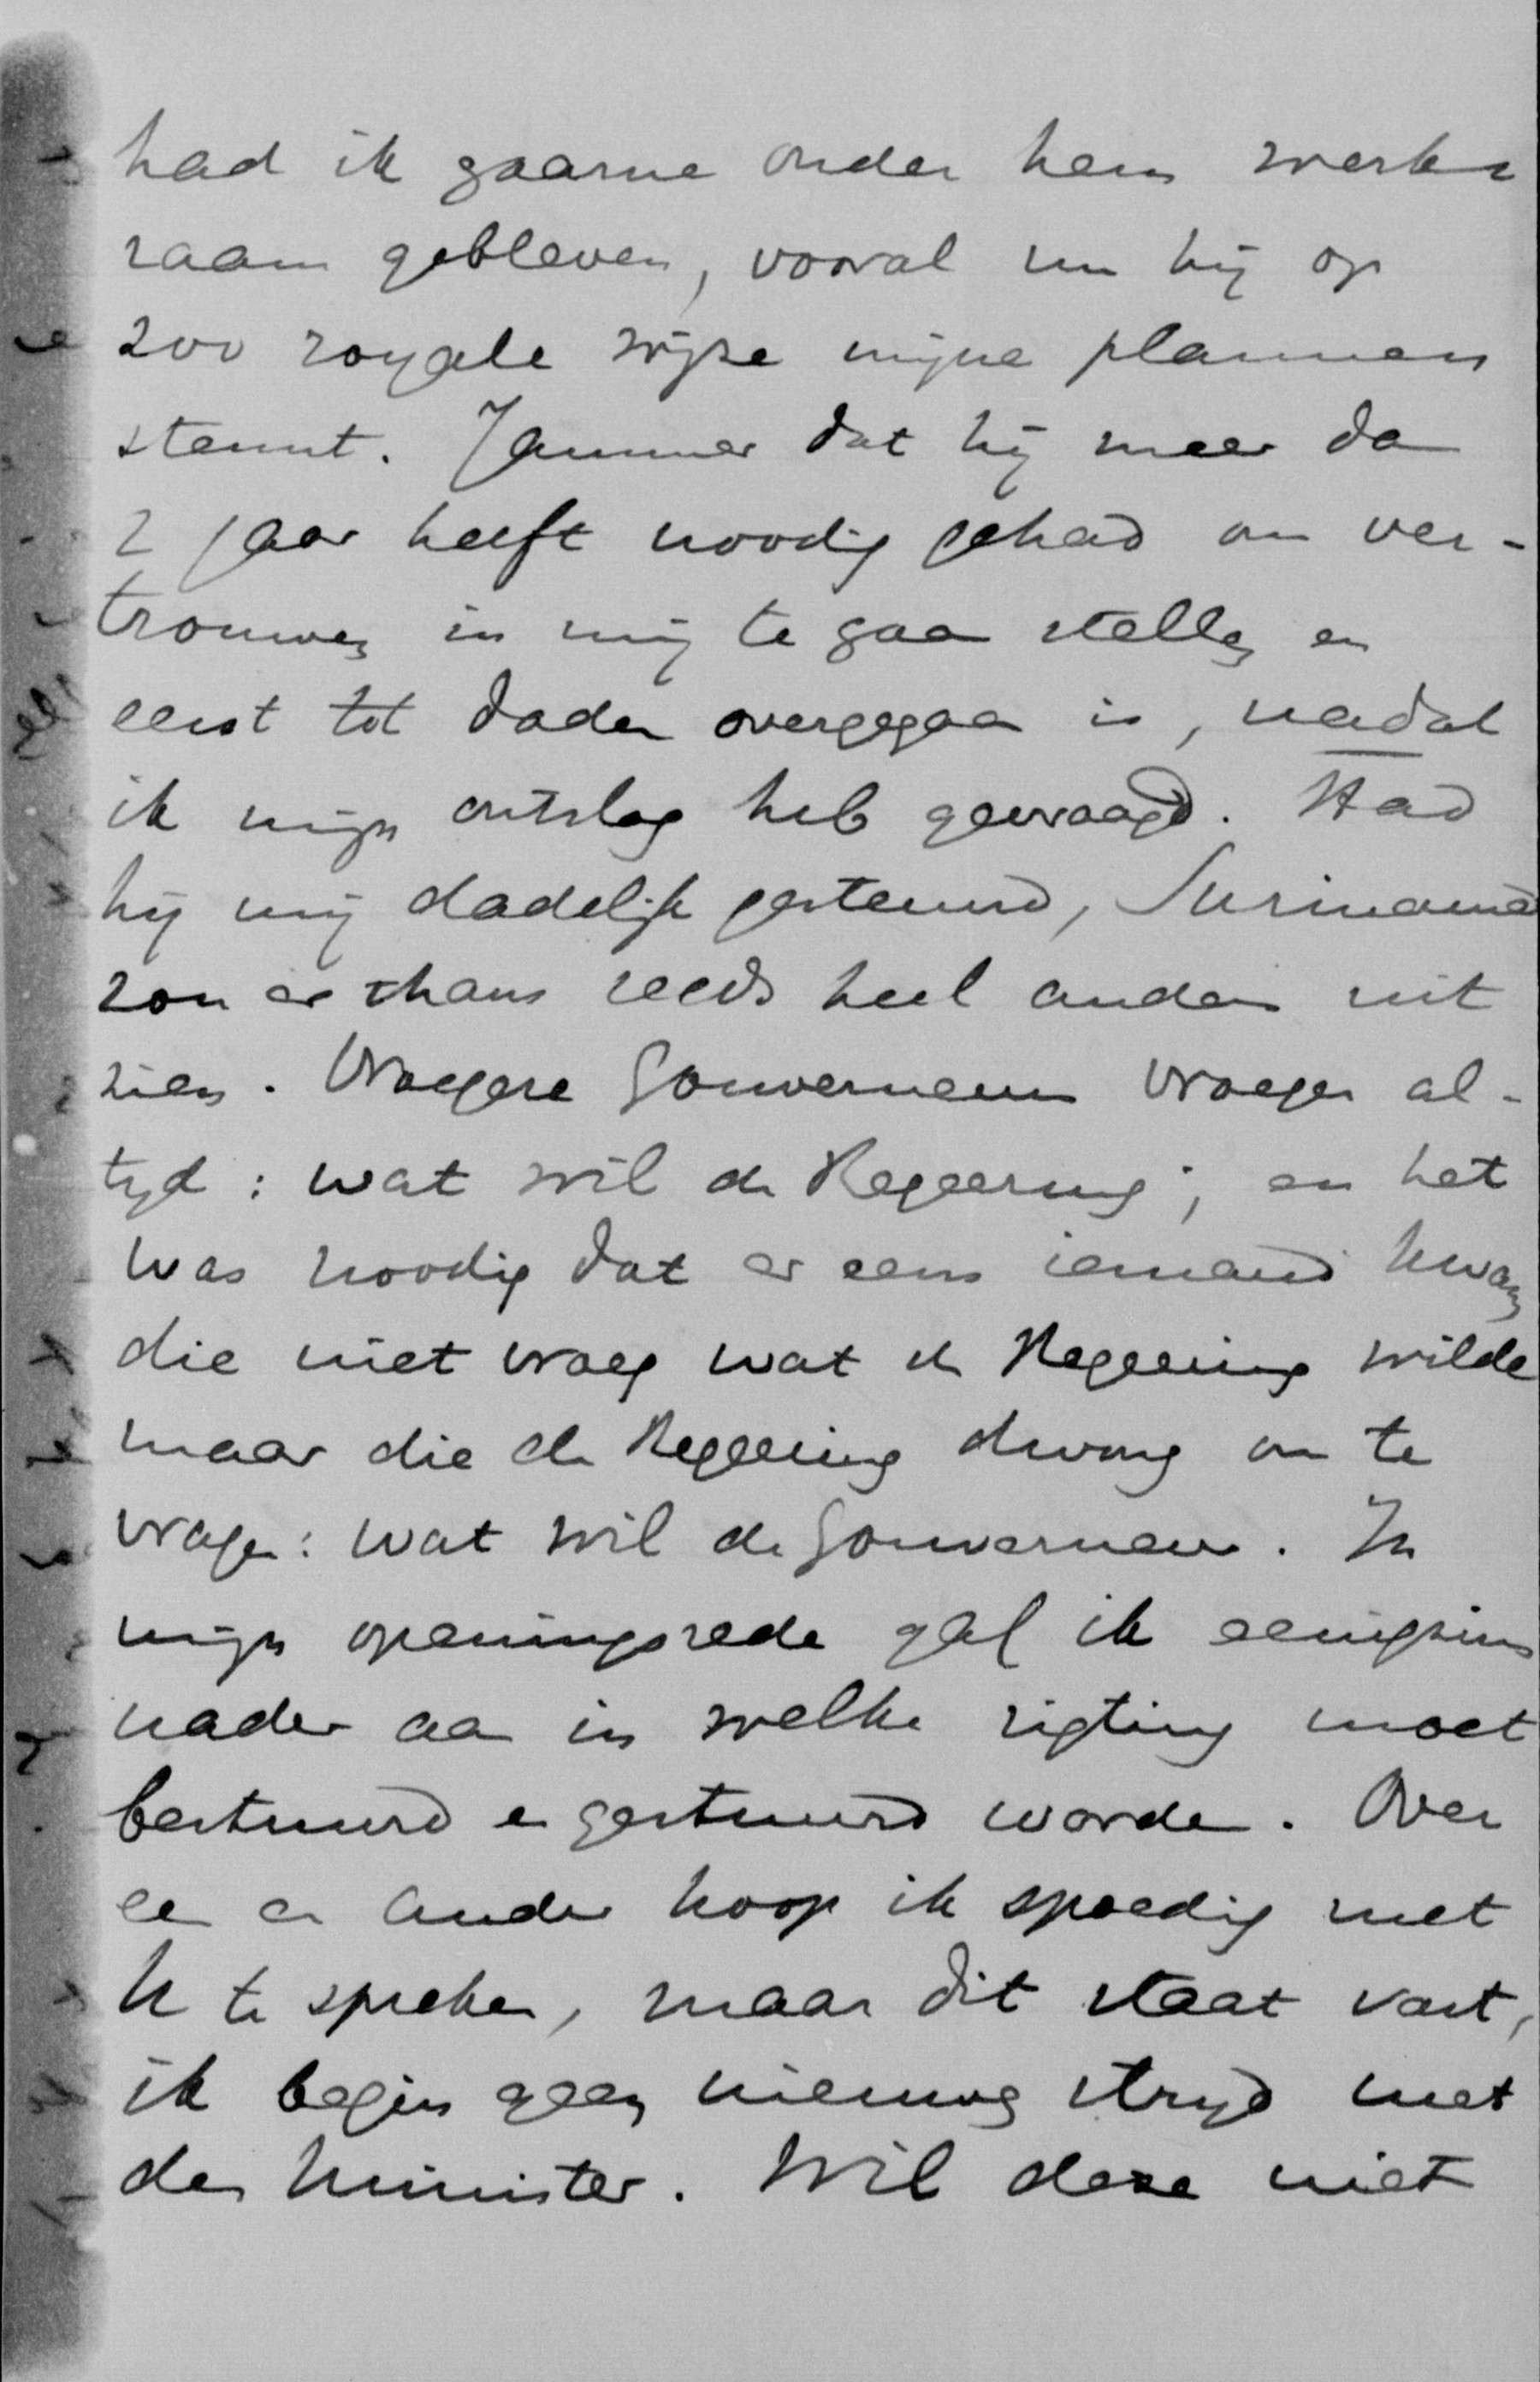 had ik gaarne onder hem werk
zaam gebleven, vooral nu hij op
zoo royale wijze mijne plannen
steunt. Jammer dat hij meer dan
2 jaar heeft noodig gehad om ver-
trouwen in mij te gaan stellen en
eerst tot daden overgegaan is, nadat
ik mijn ontslag heb gevraagd. Had
hij mij dadelijk gesteund, Suriname
zou er thans reeds heel anders uit
zien. Vroegere Gouverneurs vroegen al-
tyd: wat wil de Regeering; en het
was noodig dat er eens iemand kwam
die niet vroeg wat de Regeering wilde
maar die de Regeering dwong om te
vragen: wat wil de Gouverneur. In
mijn openingsrede gaf ik eenigzins
nader aan in welke rigting moet
bestuurd en gestuurd worden. Over
een en ander hoop ik spoedig met
U te spreken, maar dit staat vast,
ik begin geen nieuwe stryd met
den Minister. Wil deze niet